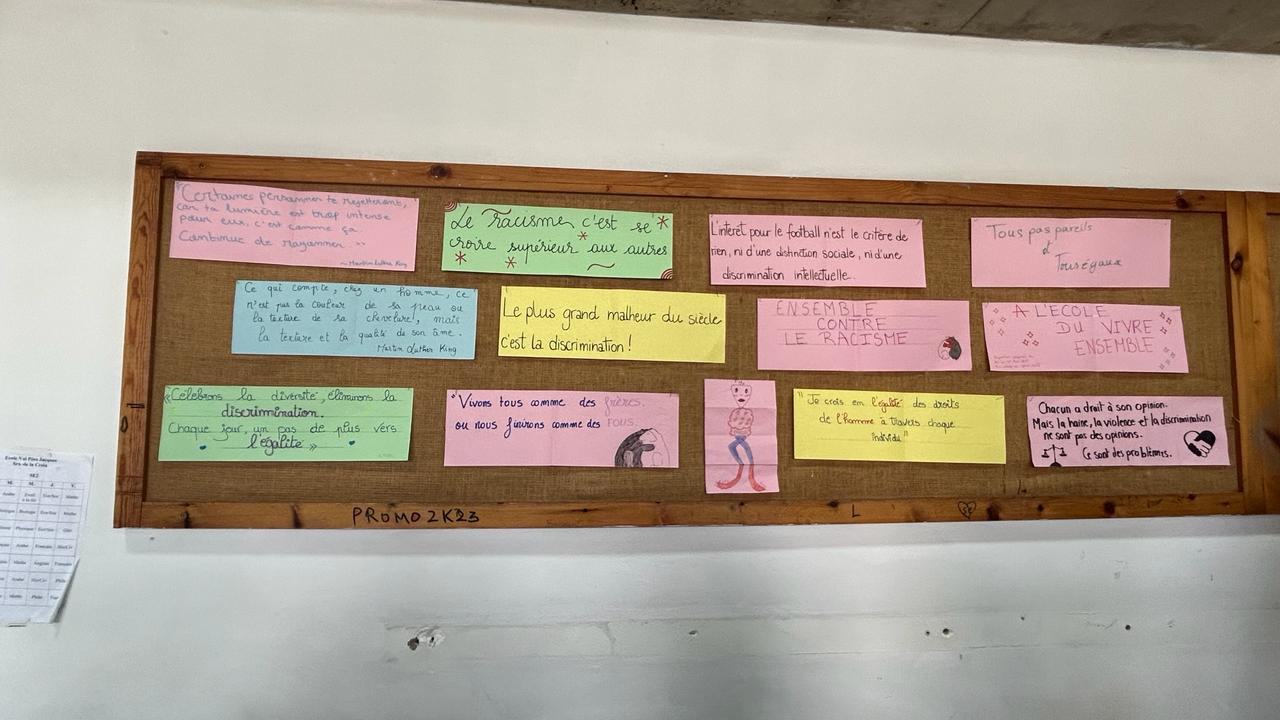 "Certaines personnes te rejetteront,
car ta lumière est trop intense
pour eux, c'est comme ça.
Continue de rayonner."
~Martin Luther King
Le racisme c'est se
croire supérieur aux autres
L'interêt pour le football n'est le critère de
rien, ni d'une distinction sociale, ni d'une
discrimination intellectuelle.
Tous pas pareils
et
Tous égaux
Ce qui compte, chez un homme, ce
n'est pas la couleur de sa peau ou
la texture de sa chevelure, mais
la texture et la qualité de son âme.
Martin Luther King
Le plus grand malheur du siècle
c'est la discrimination !
ENSEMBLE
CONTRE
LE RACISME
A L'ECOLE
DU VIVRE
ENSEMBLE
«Célébrons la diversité, éliminons la
discrimination.
Chaque jour, un pas de plus vers
l'égalité »
"Vivons tous comme des frères.
ou nous finirons comme des fous.
"Je crois en l'égalité des droits
de l'homme à travers chaque
individu"
Chacun a droit à son opinion.
Mais la haine, la violence et la discrimination
ne sont pas des opinions.
Ce sont des problèmes.
PROMO 2K23
L
SE2
M. M. J. V.